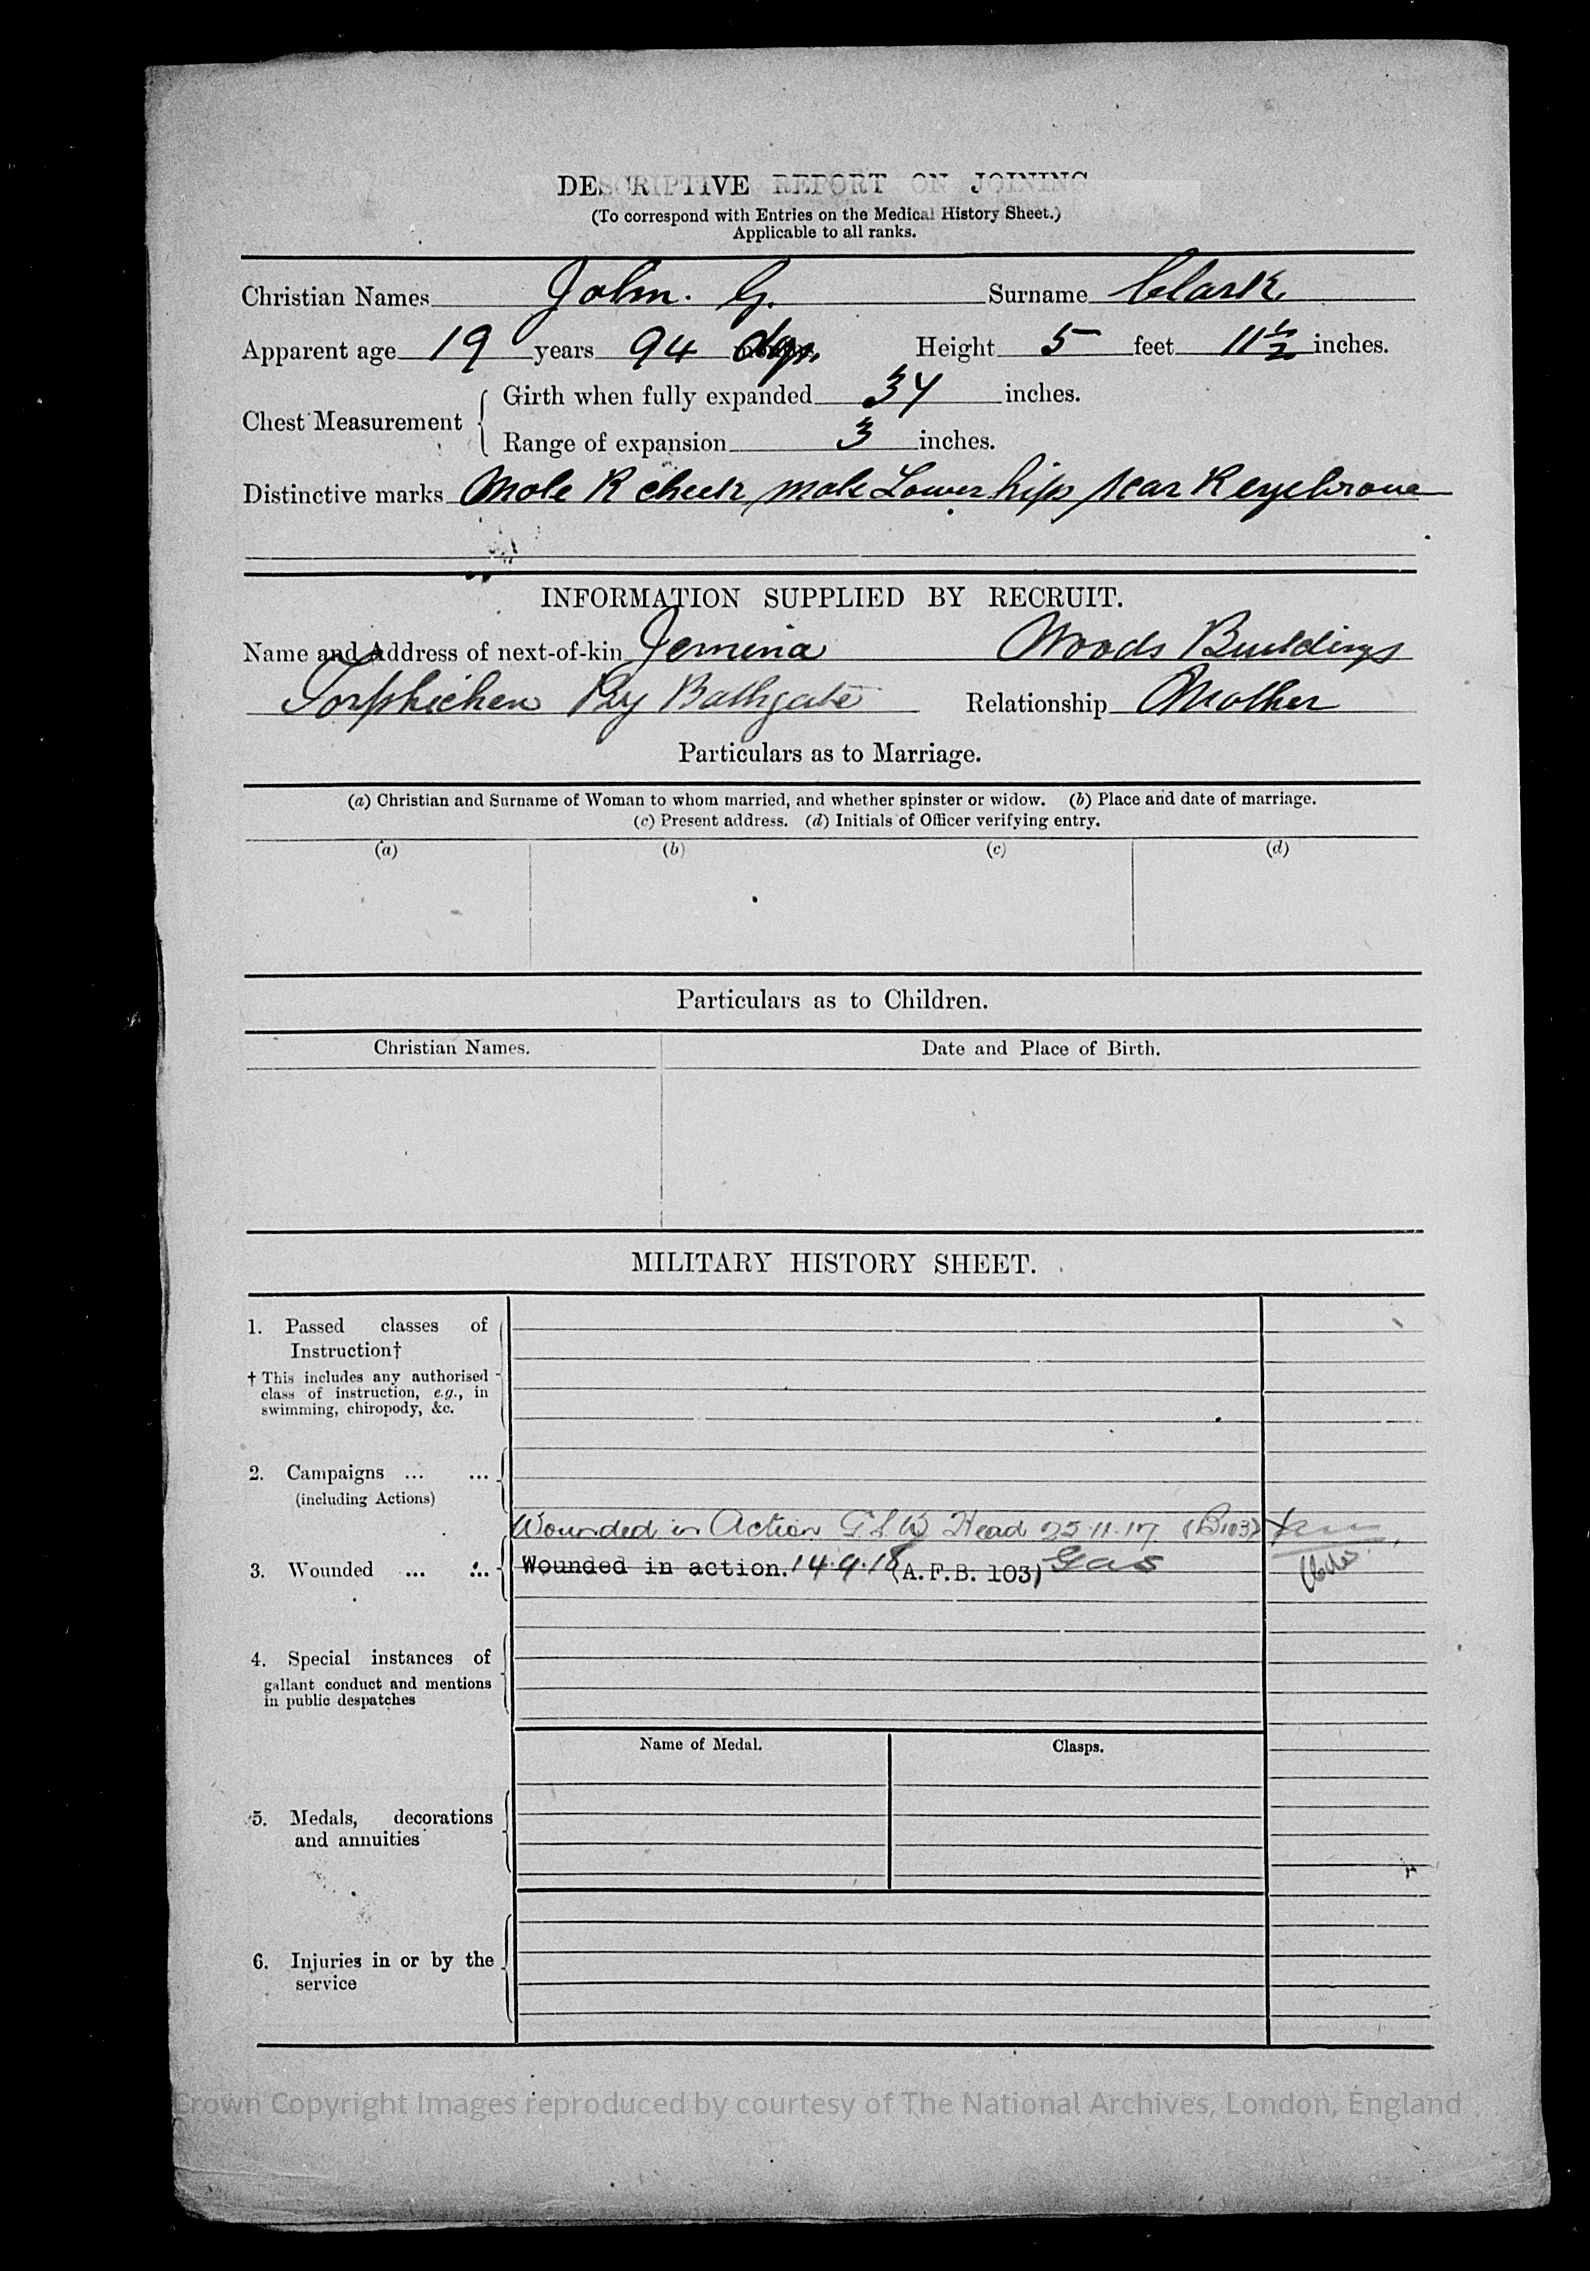 DESCRIPTIVE REPORT ON JOINING
(To correspond with Entries on the Medical History Sheet.)
Applicable to all ranks.
Christian Names John. G. Surname Clark
Apparent age 19 years 94 dys. Height 5 feet 11½ inches.
Chest Measurement { Girth when fully expanded 34 inches.
Range of expansion 3 inches.
Distinctive marks Mole R cheek, mole Lower hip, scar R eyebrow
INFORMATION SUPPLIED BY RECRUIT.
Name and Address of next-of-kin Jemina Woods Buildings
Torphichen By Bathgate Relationship Mother
Particulars as to Marriage.
(a) Christian and Surname of Woman to whom married, and whether spinster or widow. (b) Place and date of marriage.
(c) Present address. (d) Initials of Officer verifying entry.
(a) (b) (c) (d)
Particulars as to Children.
Christian Names. Date and Place of Birth.
MILITARY HISTORY SHEET.
1. Passed classes of
Instruction†
† This includes any authorised
class of instruction, e.g., in
swimming, chiropody, &c.
2. Campaigns ... ...
(including Actions)
Wounded in Action G.S.W Head 25.11.17. (B103)
3. Wounded ... ... Wounded in action. 14.9.18 (A.F.B. 103) Gas
4. Special instances of
gallant conduct and mentions
in public despatches
Name of Medal. Clasps.
5. Medals, decorations
and annuities
6. Injuries in or by the
service
Crown Copyright Images reproduced by courtesy of The National Archives, London, England